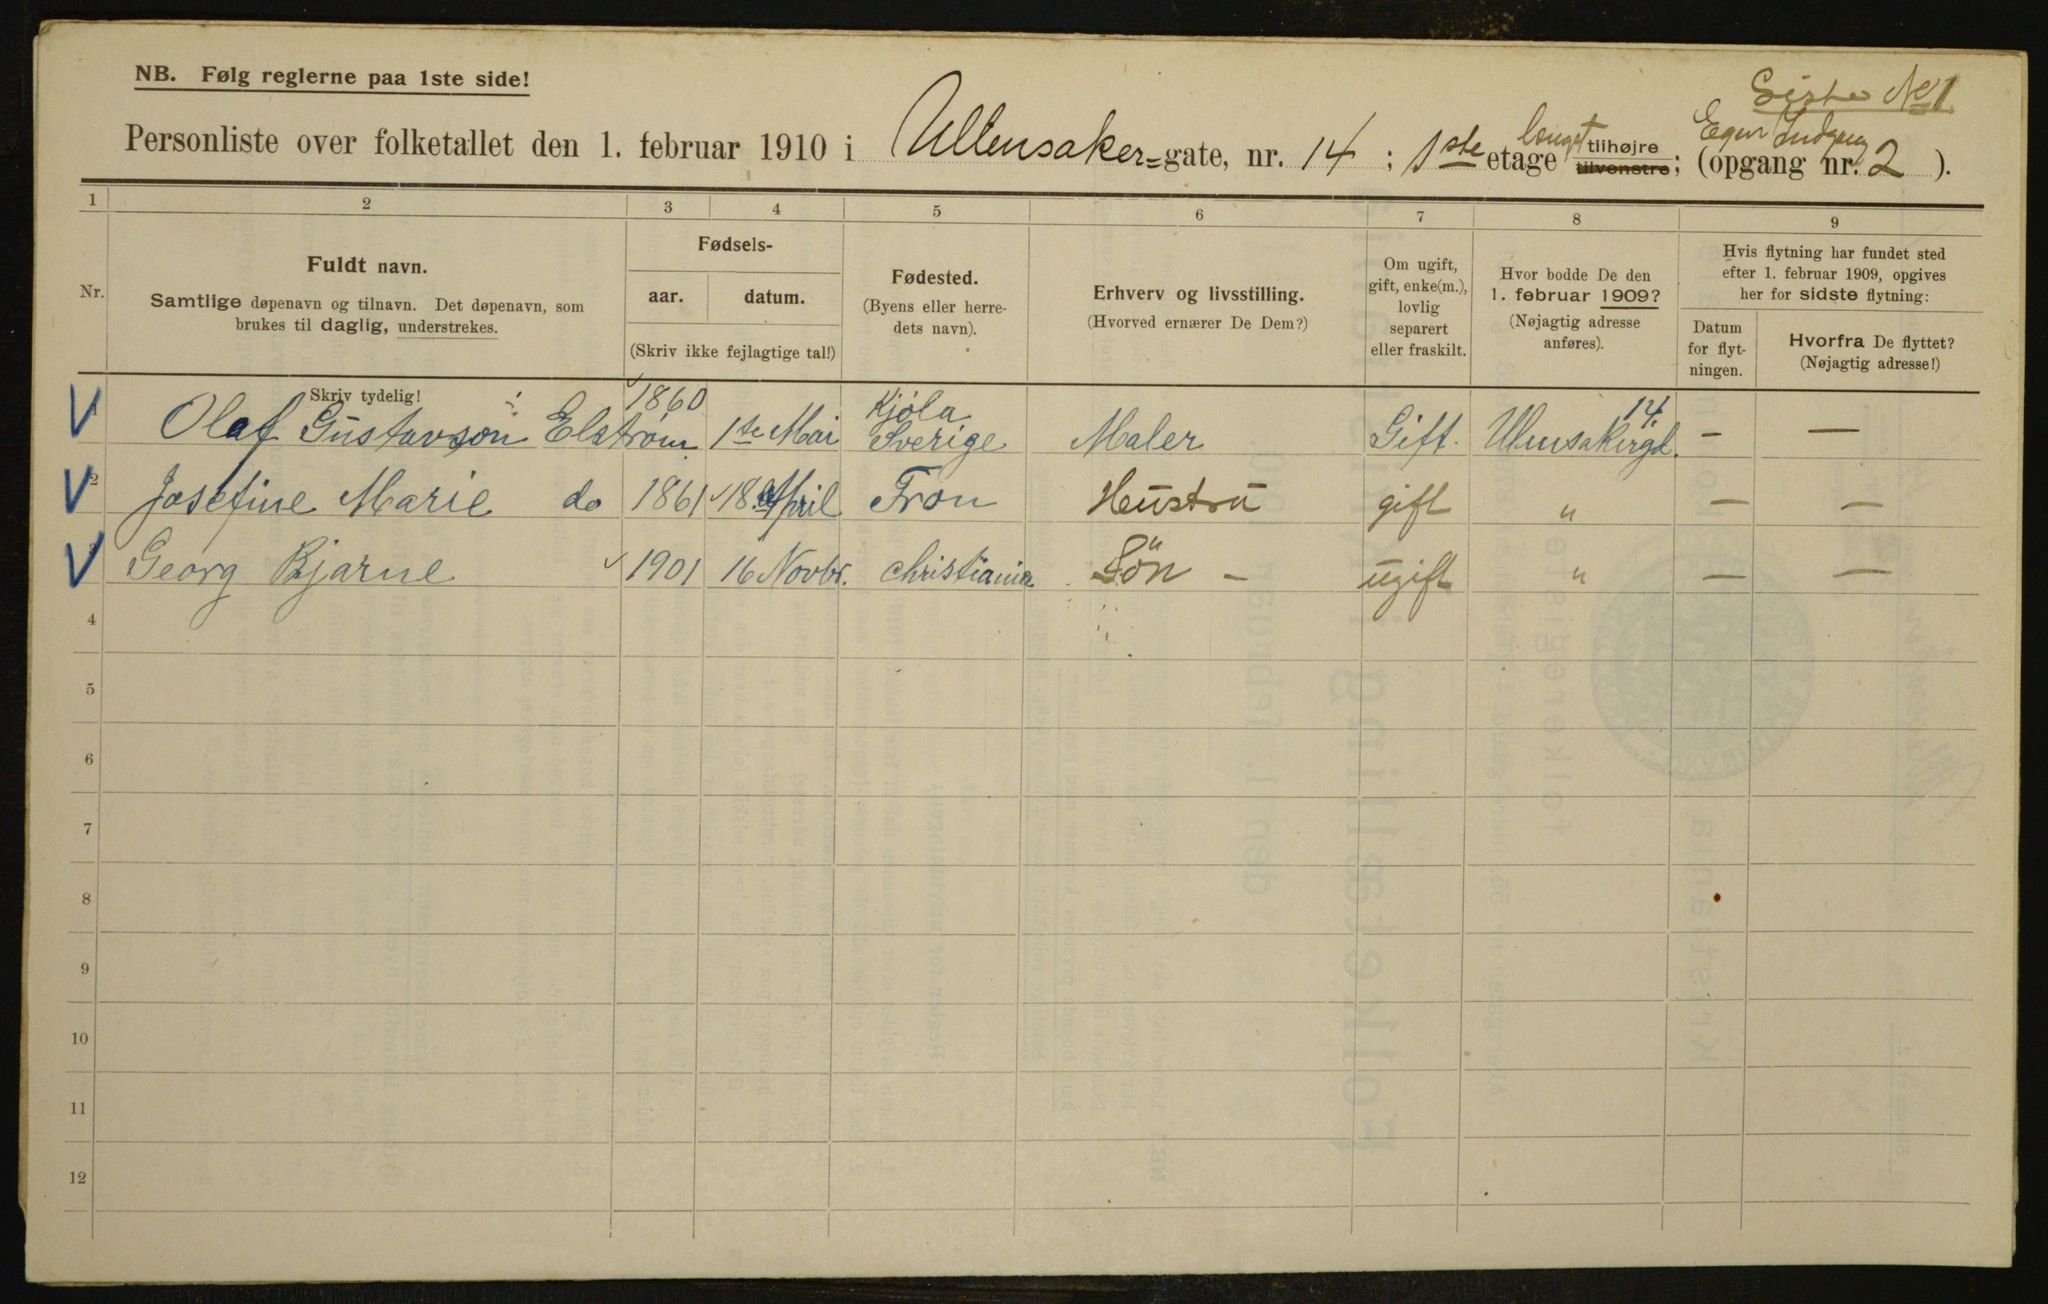 Liste No 1
NB. Følg reglerne paa 1ste side!
Egen Indgang
Personliste over folketallet den 1. februar 1910 i Ullensaker=gate, nr. 14 ; 1ste etage længst tilhøjre tilvenstre; (opgang nr. 2 ).
1 2 3 4 5 6 7 8 9
Nr.
Fuldt navn.
Samtlige døpenavn og tilnavn. Det døpenavn, som
brukes til daglig, understrekes.
Skriv tydelig!
Fødsels-
aar. datum.
(Skriv ikke fejlagtige tal!)
Fødested.
(Byens eller herre-
dets navn).
Erhverv og livsstilling.
(Hvorved ernærer De Dem?)
Om ugift,
gift, enke(m.),
lovlig
separert
eller fraskilt.
Hvor bodde De den
1. februar 1909?
(Nøjagtig adresse
anføres).
Hvis flytning har fundet sted
efter 1. februar 1909, opgives
her for sidste flytning:
Datum
for flyt-
ningen.
Hvorfra De flyttet?
(Nøjagtig adresse!)
1 Olaf Gustavson Elström 1860 1ste Mai Kjöla Sverige Maler Gift. Ulensakergd. 14. — —
2 Josefine Marie do 1861 18. April Fron Hustru gift " — —
3 Georg Bjarne 1901 16 Novbr. Christiania Sön — ugift " — —
4
5
6
7
8
9
10
11
12